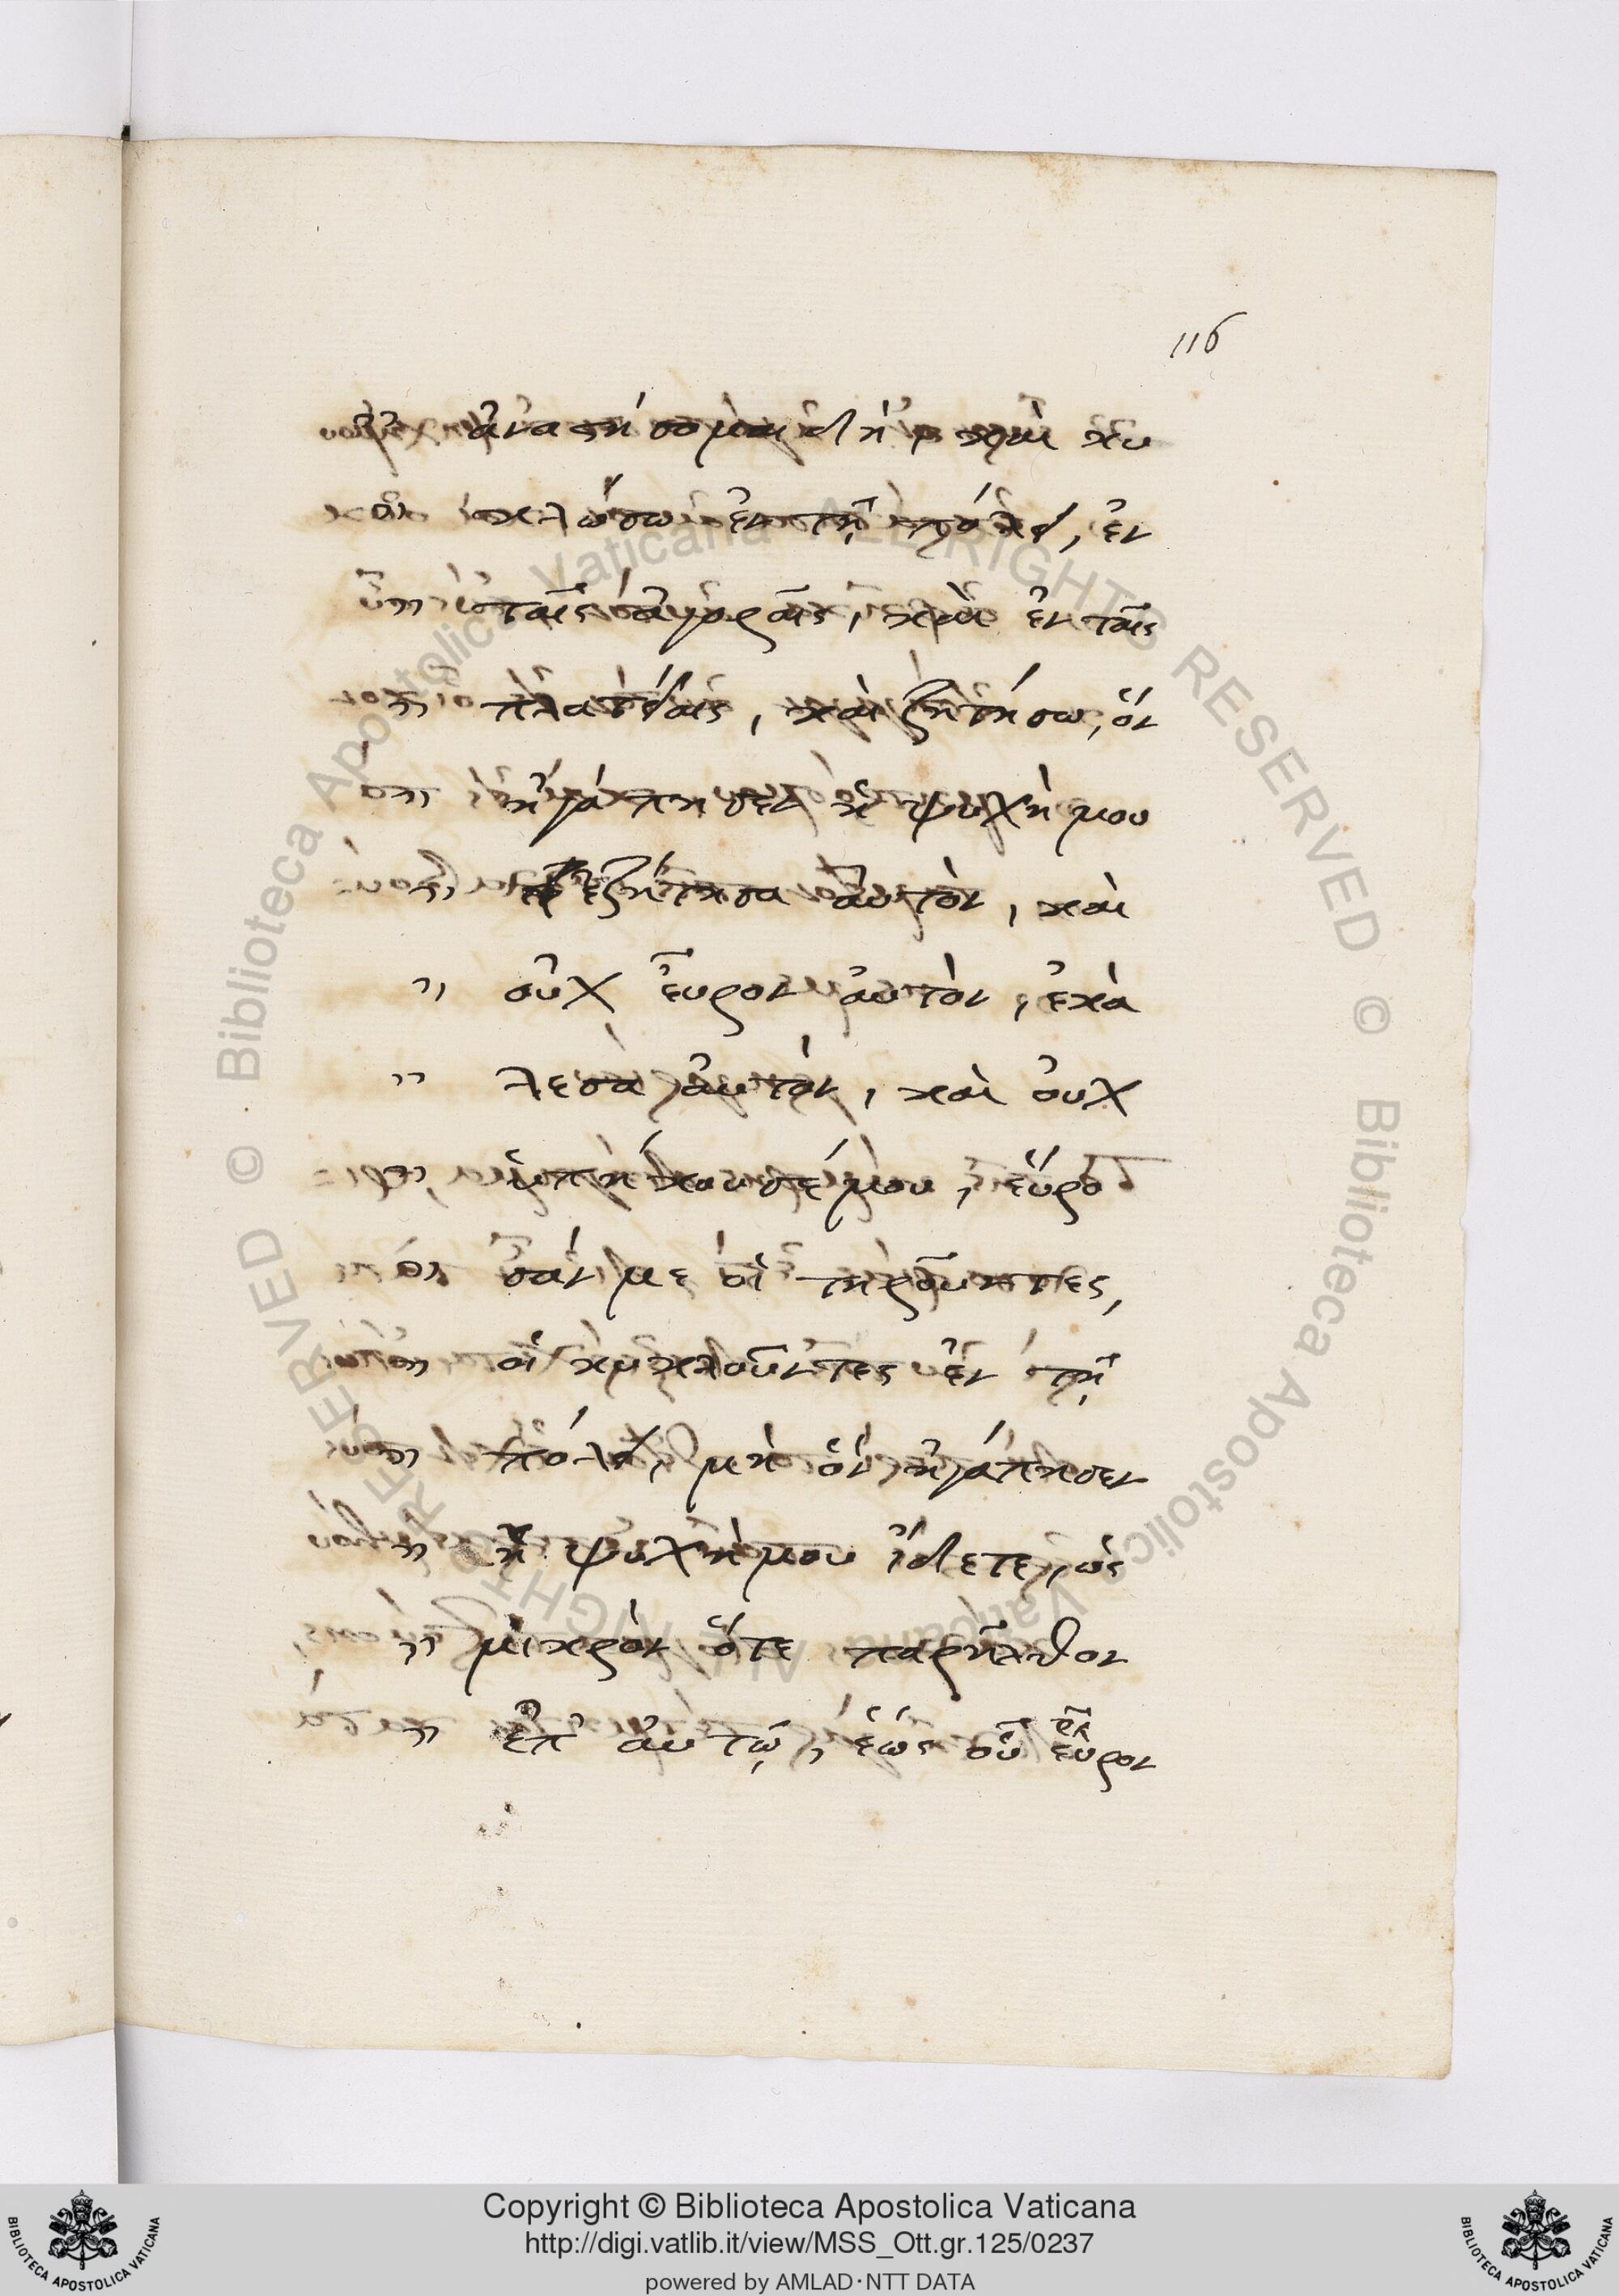 116
" ἀναστήσομαι δὴ, καὶ κυ
" κλώσω ἐν τῇ πόλει, ἐν
" ταῖς ἀγοραῖς, καὶ ἐν ταῖς
" πλατείαις, καὶ ζητήσω, ὃν
" ἠγάπησεν ἡ ψυχή μου
" ἐζήτησα αὐτὸν, καὶ
" οὐχ εὗρον αὐτὸν, ἐκά
" λεσα αὐτὸν, καὶ οὐχ
" ὑπήκουσέ μου, εὕρο
" σάν με οἱ τηροῦντες,
" οἱ κυκλοῦντες ἐν τῇ
" πόλει, μὴ ὃν ἠγάπησεν
" ἡ ψυχή μου ἴδετε, ὡς
" μικρὸν ὅτε παρῆλθον
" ἐπ' αὐτῷ, ἕως οὗ εὗρον
Copyright © Biblioteca Apostolica Vaticana
http://digi.vatlib.it/view/MSS_Ott.gr.125/0237
powered by AMLAD·NTT DATA
BIBLIOTECA APOSTOLICA VATICANA
BIBLIOTECA APOSTOLICA VATICANA
© Biblioteca Apostolica Vaticana ALL RIGHTS RESERVED
© Biblioteca Apostolica Vaticana ALL RIGHTS RESERVED